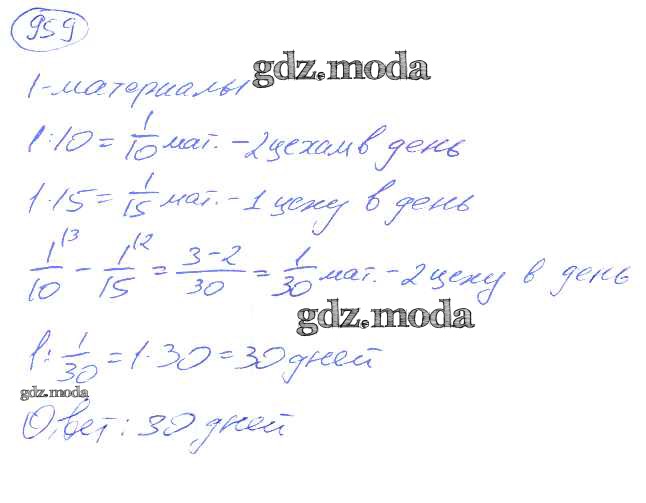 959
gdz.moda
1-материалы
1:10 = 1/10 мат. - 2 цехам в день
1:15 = 1/15 мат. - 1 цеху в день
1/10 (3 - 1/15 (2 = 3-2/30 = 1/30 мат. - 2 цеху в день
gdz.moda
1: 1/30 = 1·30 = 30 дней
gdz.moda
Ответ: 30 дней